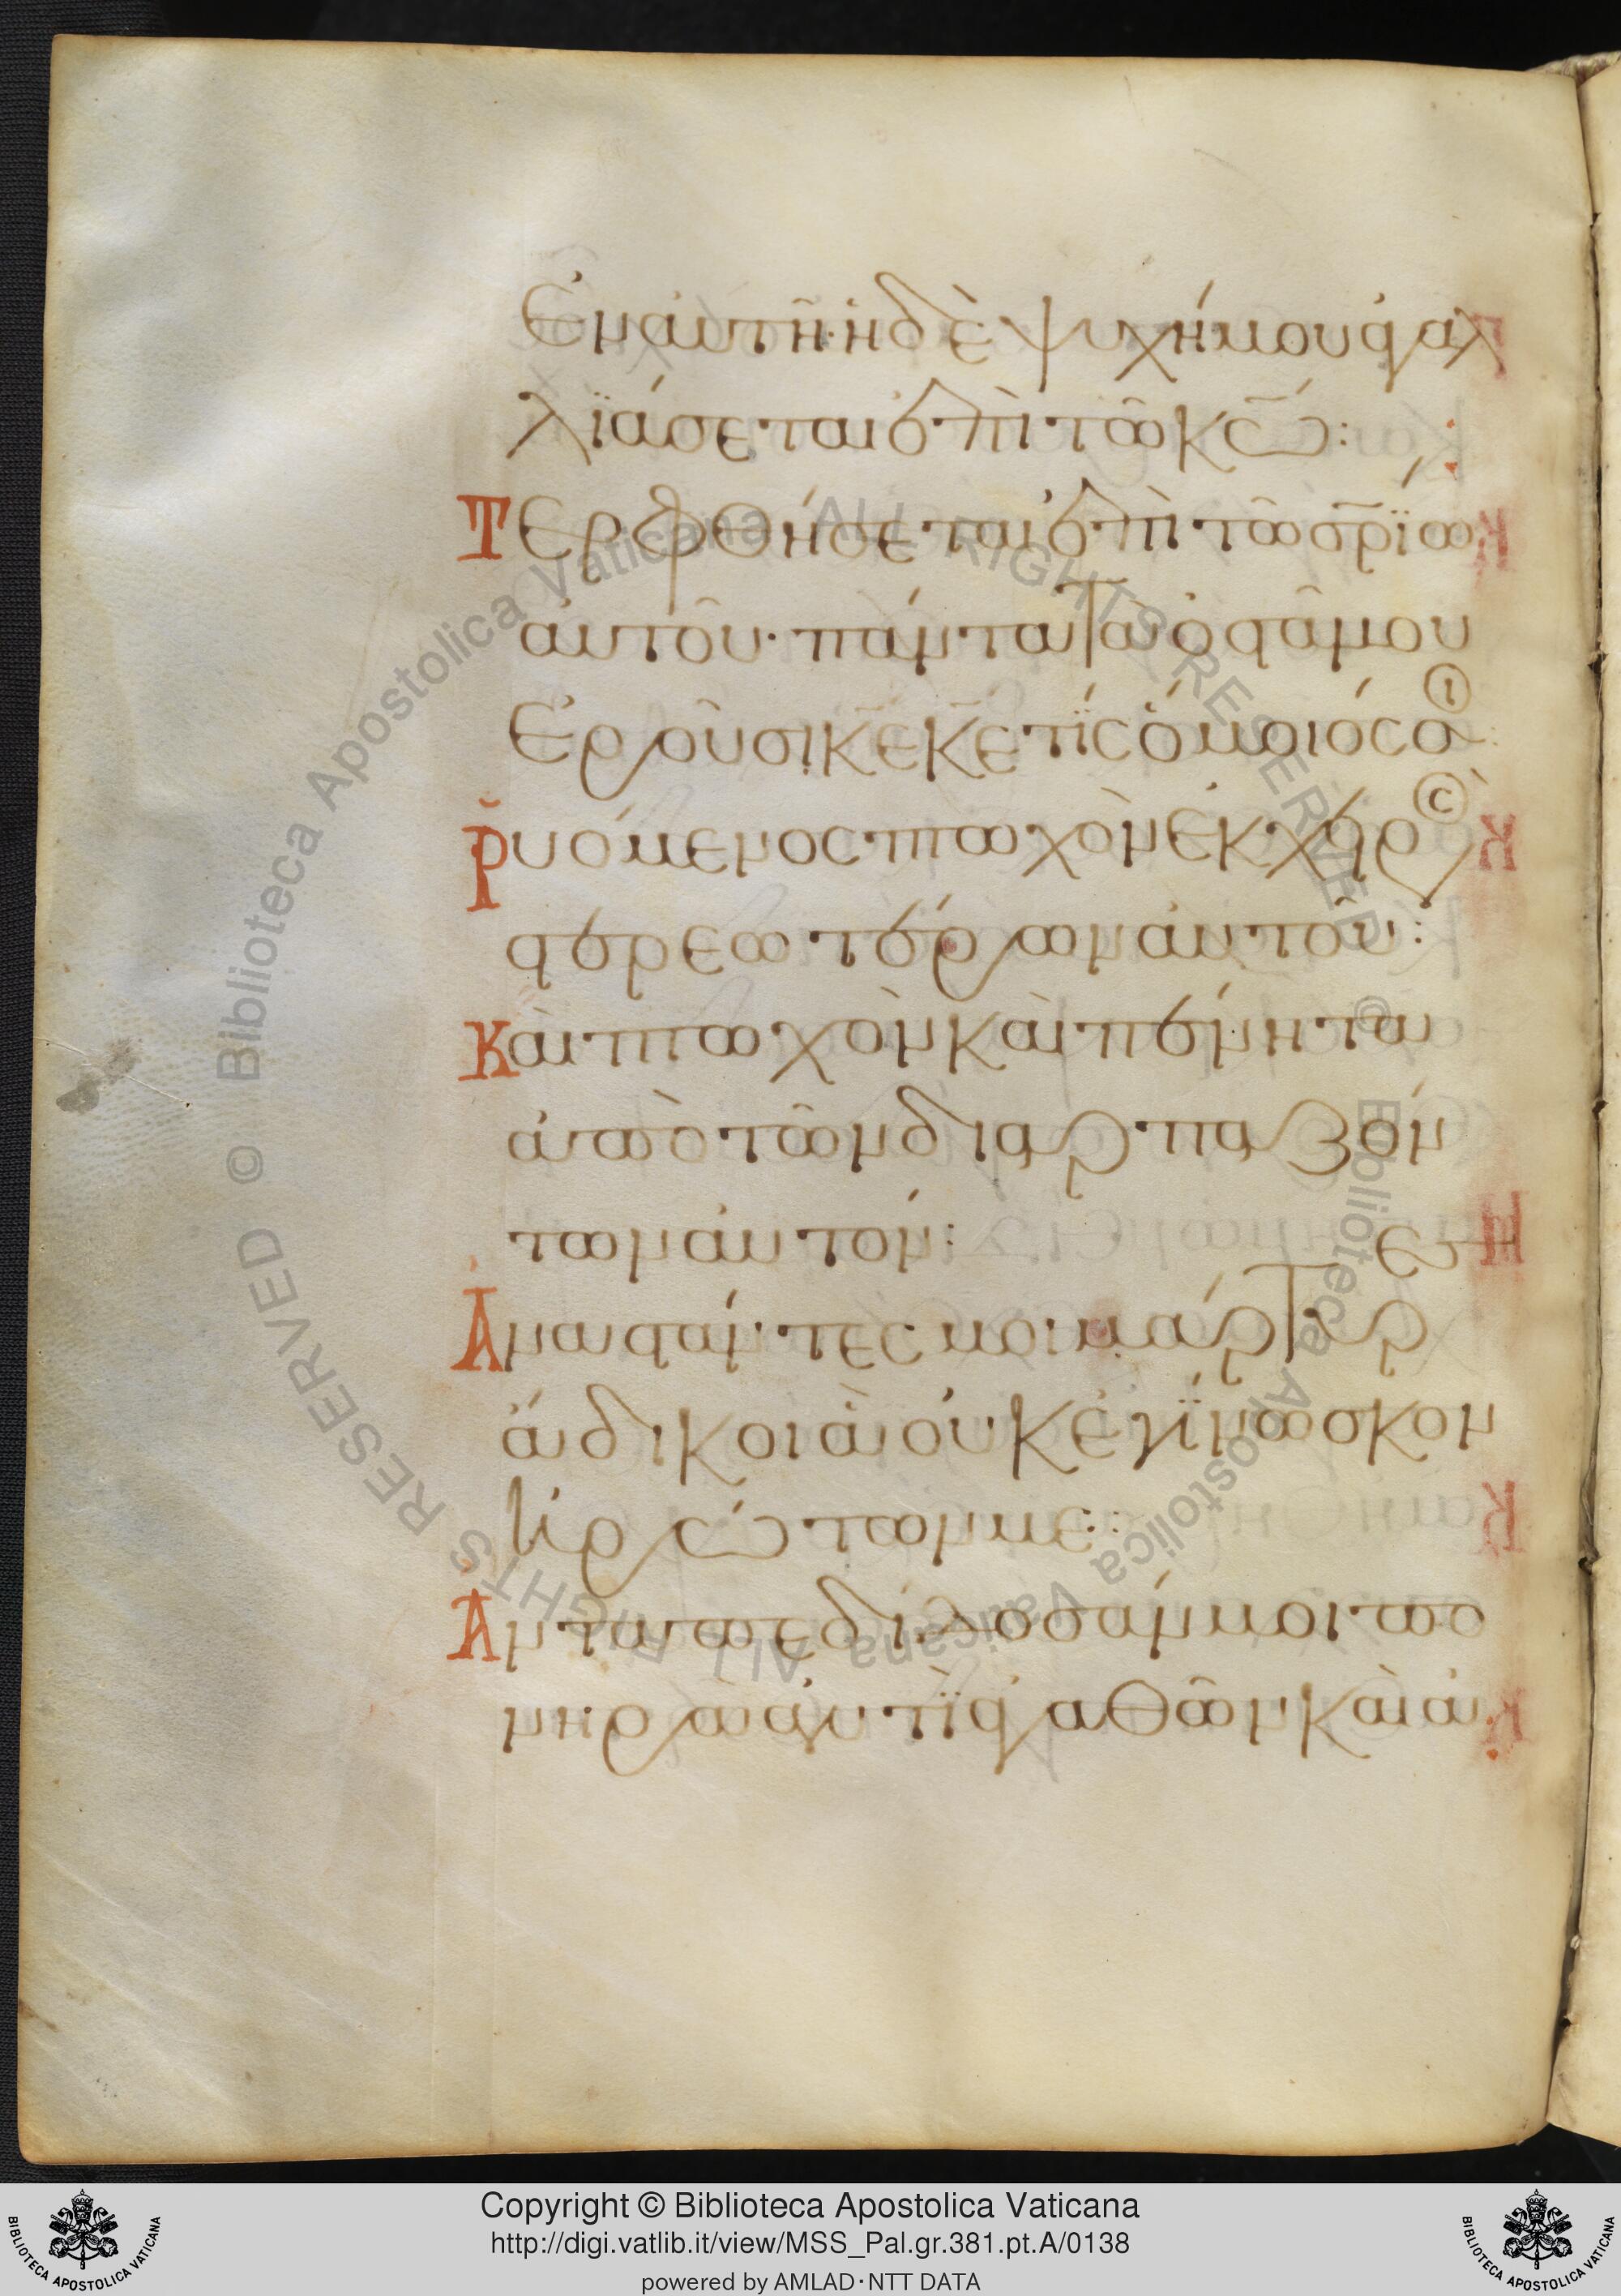 Ἐν αυτῆ· ἡ δὲ ψυχή μου ἀγαλ
λϊάσεται ἐπὶ τῶ κω̅:
Τερφθήσεται ἐπὶ τῶ σρ̅ϊω
ἀυτοῦ· πάντα τὰ ὀστᾶ μου
ἐροῦσι κ̅ε κ̅ε τίς ὅμοιός σοι
Ῥυόμενος πτωχὸν ἐκ χειρὸς
στερεωτέρων ἀυτοῦ:
Καὶ πτωχὸν καὶ πένητα
ἀπὸ τῶν διαρπαζόν
των ἀυτόν:
Ἀναστάντες μοι μάρτυρες
ἄδικοι ἃ οὐκ ἐγίνωσκον
ἠρώτων με:
Ἀνταπεδίδοσάν μοι πο
νηρὰ ἀντὶ ἀγαθῶν καὶ ἀ
© Biblioteca Apostolica Vaticana ALL RIGHTS RESERVED © Biblioteca Apostolica Vaticana ALL RIGHTS RESERVED
Copyright © Biblioteca Apostolica Vaticana
http://digi.vatlib.it/view/MSS_Pal.gr.381.pt.A/0138
powered by AMLAD·NTT DATA
BIBLIOTECA APOSTOLICA VATICANA
BIBLIOTECA APOSTOLICA VATICANA